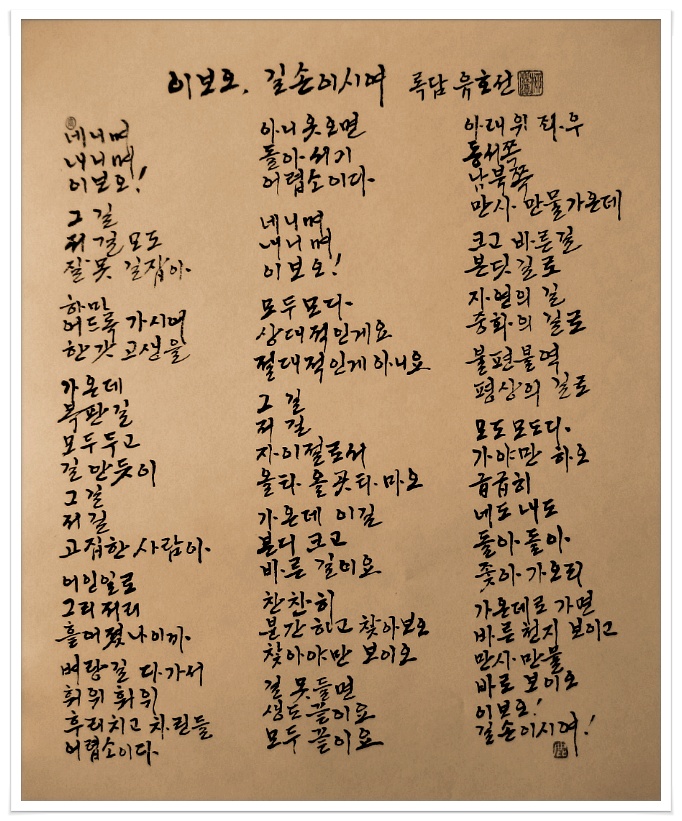 이보오, 길손이시여 록담 유호선
네니며
내니며
이보오!
그 길
저 길 모도
잘못 길잡아
하마
어드록 가시여
한갓 고생을
가온데
복판길
모두 두고
길 만듯이
그 길
저 길
고집한 사람아
어인일로
그리 저리
흘어졌나이까
벼랑길 다가서
휘위 휘위
후리치고 차린들
어렵소이다
아니 옷오면
돌아서기
어렵소이다
네니며
내니며
이보오!
모두 모다
상대적인게요
절대적인게 아니요
그 길
저 길
자이절로서
올타 올곳타 마오
가온데 이길
본디 크고
바른 길이요
찬찬히
분간하고 찾아보오
찾아야만 보이오
길 못들면
생도 끝이요
모두 끝이요
아래 위 좌우
동서쪽
남북쪽
만사 만물 가온데
크고 바른길
본딧 길로
자연의 길
중화의 길로
불편불역
평상의 길로
모도 모도다
가야만 하오
급급히
네도 내도
돌아 돌아
좇아 가오리
가온데로 가면
바른 천지 보이고
만사 만물
바로 보이오
이보오!
길손이시여!